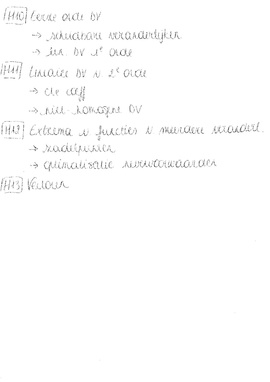 H10 Eerste orde DV
→ scheidbare veranderlijken
→ lin. DV 1e orde
H11 Lineaire DV v 2e orde
→ cte coëff
→ niet-homogene DV
H12 Extrema v functies v meerdere veranderl.
→ zadelpunten
→ optimalisatie nevenvoorwaarden
H13